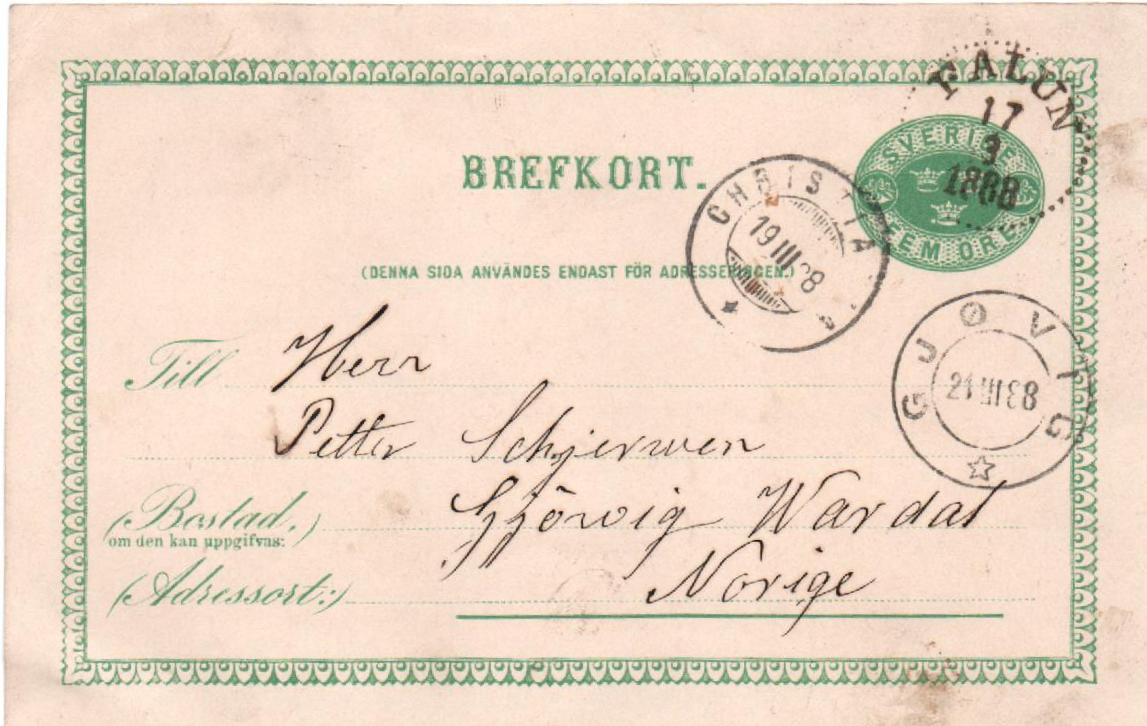 FALUN
17
3
1888
SVERIGE
FEM ÖRE
BREFKORT.
CHRISTIA
19 III 88
(DENNA SIDA ANVÄNDES ENDAST FÖR ADRESSERINGEN.)
GJØVIG
21 III 88
Till Herr
Petter Schjerwen
(Bostad,)
om den kan uppgifvas:
Gjöwig Wardal
(Adressort:) Norige